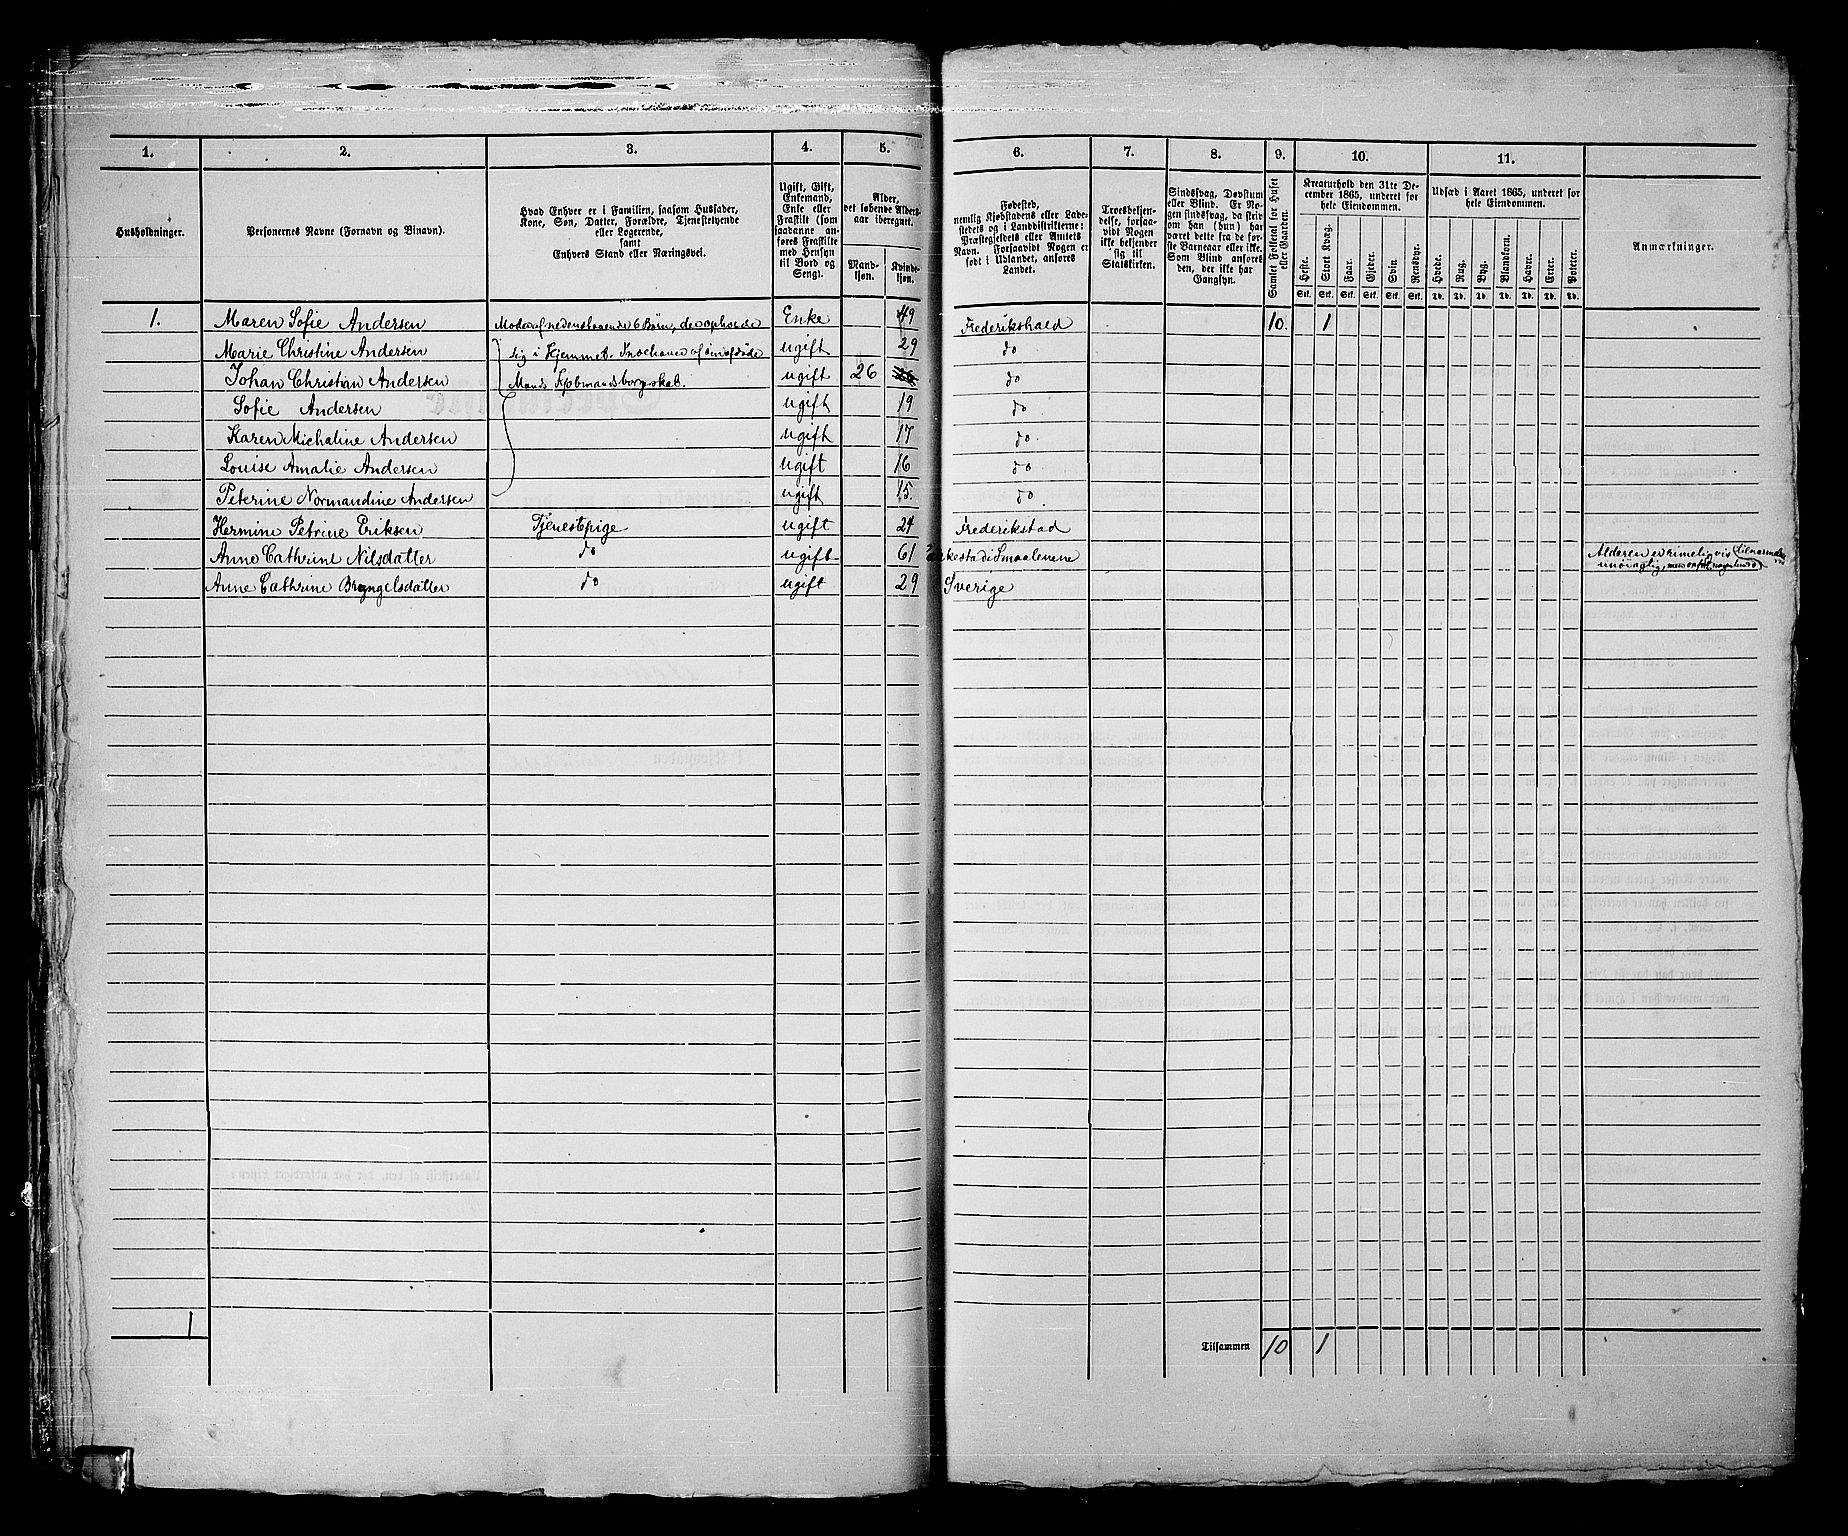 1.
2.
3.
4.
5.
6.
7.
8.
9.
10.
11.
Husholdninger.
Personernes Navne (Fornavn og Binavn).
Hvad Enhver er i Familien, saasom Husfader,
Kone, Søn, Datter, Forældre, Tjenestetyende
eller Logerende,
samt
Enhvers Stand eller Næringsvei.
Ugift, Gift,
Enkemand,
Enke eller
Fraskilt (som
saadanne an-
føres Fraskilte
med Hensyn
til Bord og
Seng).
Alder,
det løbende Alders-
aar iberegnet.
Mand-
kjøn.
Kvinde-
kjøn.
Fødested,
nemlig Kjøbstadens eller Lade-
stedets og i Landdistrikterne:
Præstegjeldets eller Amtets
Navn. Forsaavidt Nogen er
født i Udlandet, anføres
Landet.
Troesbekjen-
delse, forsaa-
vidt Nogen
ikke bekjender
sig til
Statskirken.
Sindssvag, Døvstum
eller Blind. Er No-
gen sindssvag, da skriv
om han (hun) har
været dette fra de før-
ste Barneaar eller ikke.
Som Blind anføres
den, der ikke har
Gangsyn.
Samlet Folketal for Huset
eller Gaarden.
Kreaturhold den 31te De-
cember 1865, underet for
hele Eiendommen.
Heste.
Stort Kvæg.
Faar.
Gjeder.
Svin.
Rensdyr.
Stk. Stk. Stk. Stk. Stk. Stk.
Udsæd i Aaret 1865, underet for
hele Eiendommen.
Hvede.
Rug.
Byg.
Blandkorn.
Havre.
Erter.
Poteter.
Td. Td. Td. Td. Td. Td. Td.
Anmærkninger.
1. Maren Sofie Andersen Moder af nedenstaaende 6 Børn, der opholde Enke 49 Frederikshald 10. 1
Marie Christine Andersen sig i Hjemmet. Indehaver af sin afdøde ugift 29 do
Johan Christian Andersen Mands Kjøbmandsborgerskab. ugift 26 do
Sofie Andersen ugift 19 do
Karen Michaline Andersen ugift 17 do
Louise Amalie Andersen ugift 16 do
Petrine Normandine Andersen ugift 15. do
Hermine Petrine Eriksen Tjenestepige ugift 24 Frederikstad
Anne Cathrine Nilsdatter do ugift 61 i Smaalenene Alderen er rimeligvis
unøiagtig, men
Anne Cathrine Bryngelsdatter do ugift 29 Sverige
1
Tilsammen 10 1